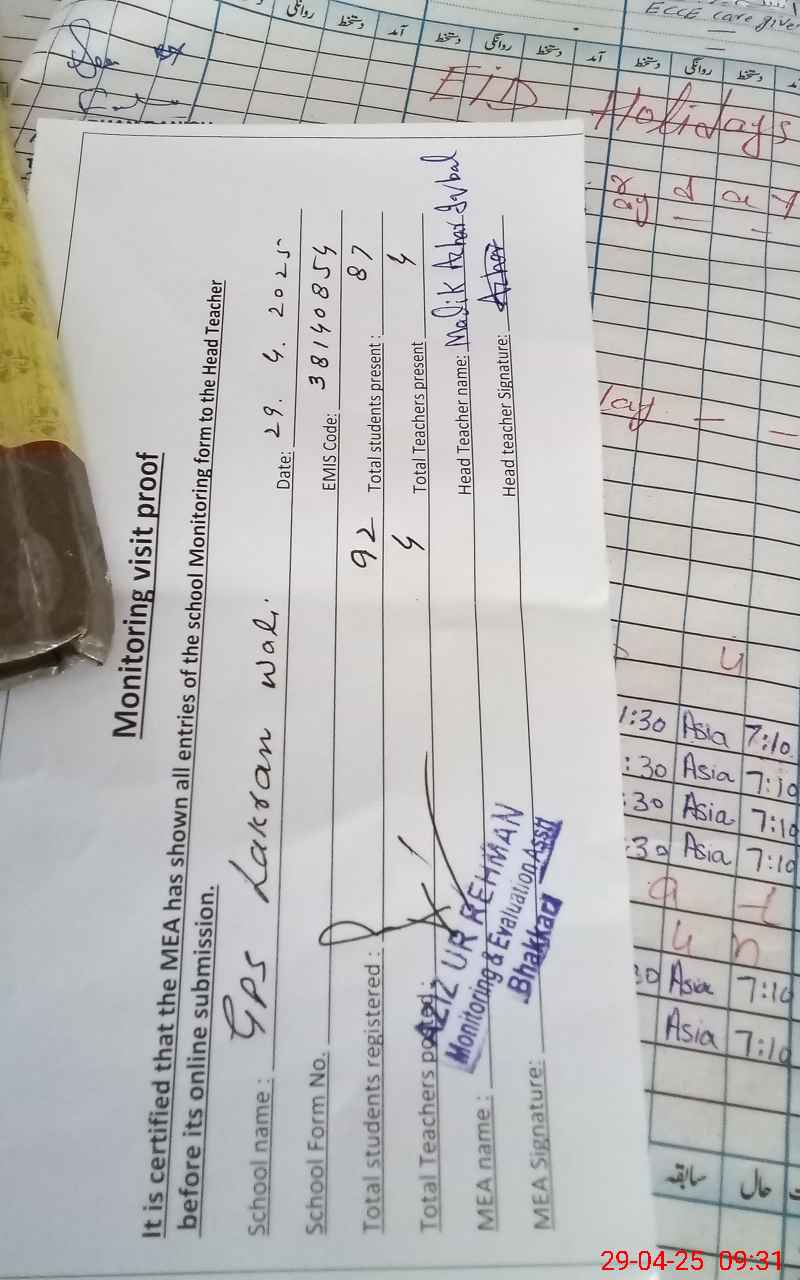 Monitoring visit proof
It is certified that the MEA has shown all entries of the school Monitoring form to the Head Teacher
before its online submission.
School name : GPS Lakran wali Date: 29. 4. 2025
School Form No. EMIS Code: 38140854
Total students registered : 92 Total students present : 87
Total Teachers posted : 4 Total Teachers present 4
MEA name : Head Teacher name: Malik Azhar Iqbal
MEA Signature: Head teacher Signature: Azhar
AZIZ UR REHMAN
Monitoring & Evaluation Asstt
Bhakkar
ECCE care giver
روانگی دستخط آمد دستخط روانگی دستخط آمد دستخط روانگی دستخط
EID Holidays
1:30 Asia 7:10
:30 Asia 7:10
:30 Asia 7:10
:30 Asia 7:10
30 Asia 7:10
Asia 7:10
سابقہ حال
29-04-25 09:31